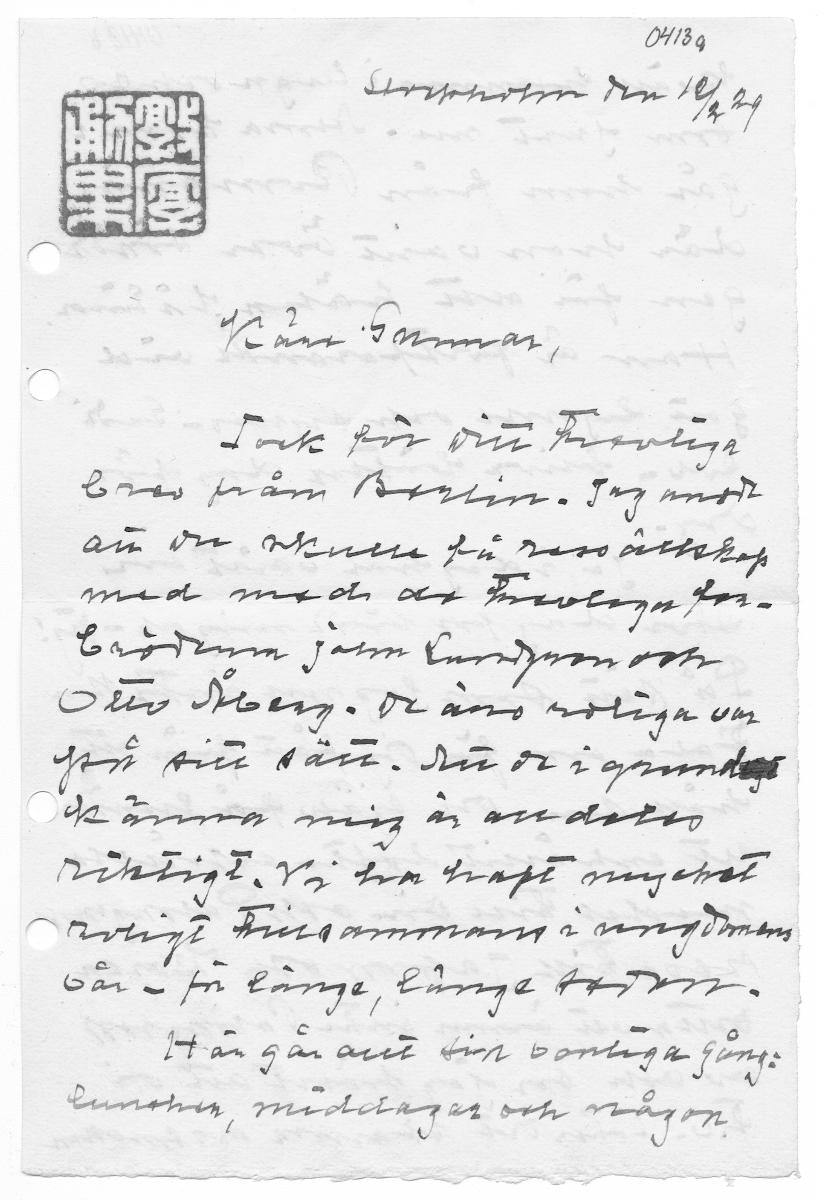 0413a
Stockholm den 12/2 29
Käre Gunnar,
Tack för Ditt trevliga
brev från Berlin. Jag anade
att du skulle få resesällskap
med med de trevliga för-
bröderna John Lundqvon och
Otto Åberg. De äro roliga var
på sitt sätt. Att de i grund
känna mig är alldeles
riktigt. Vi har haft mycket
roligt tillsammans i ungdomens
vår – för länge, länge sedan.
Här går allt sin vanliga gång:
luncher, middagar och någon